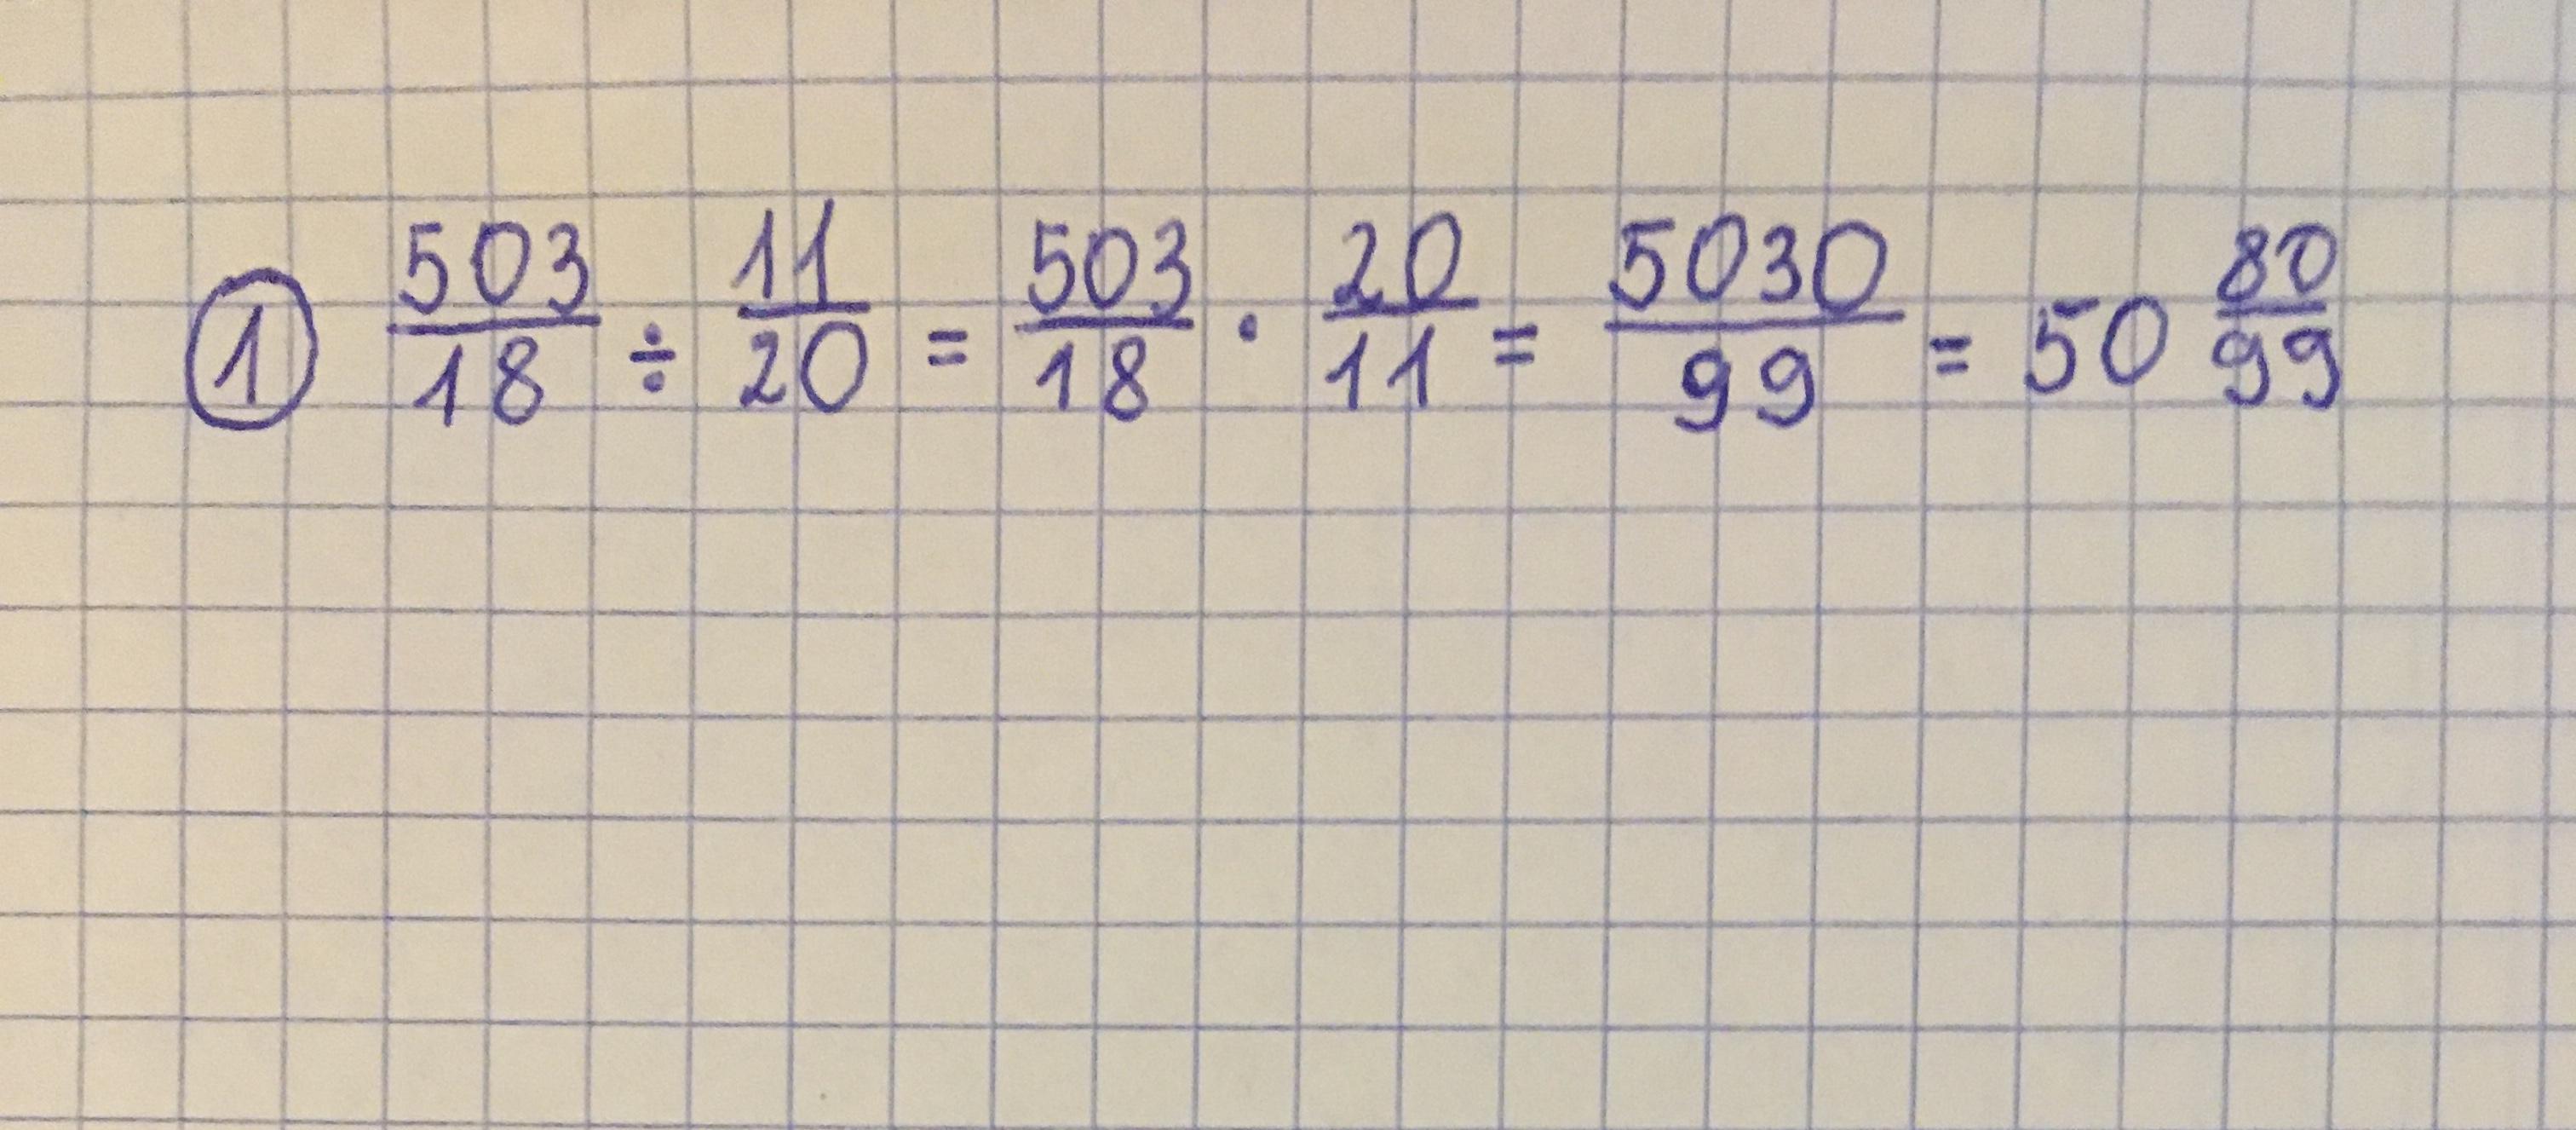 ① 503/18 ÷ 11/20 = 503/18 · 20/11 = 5030/99 = 50 80/99